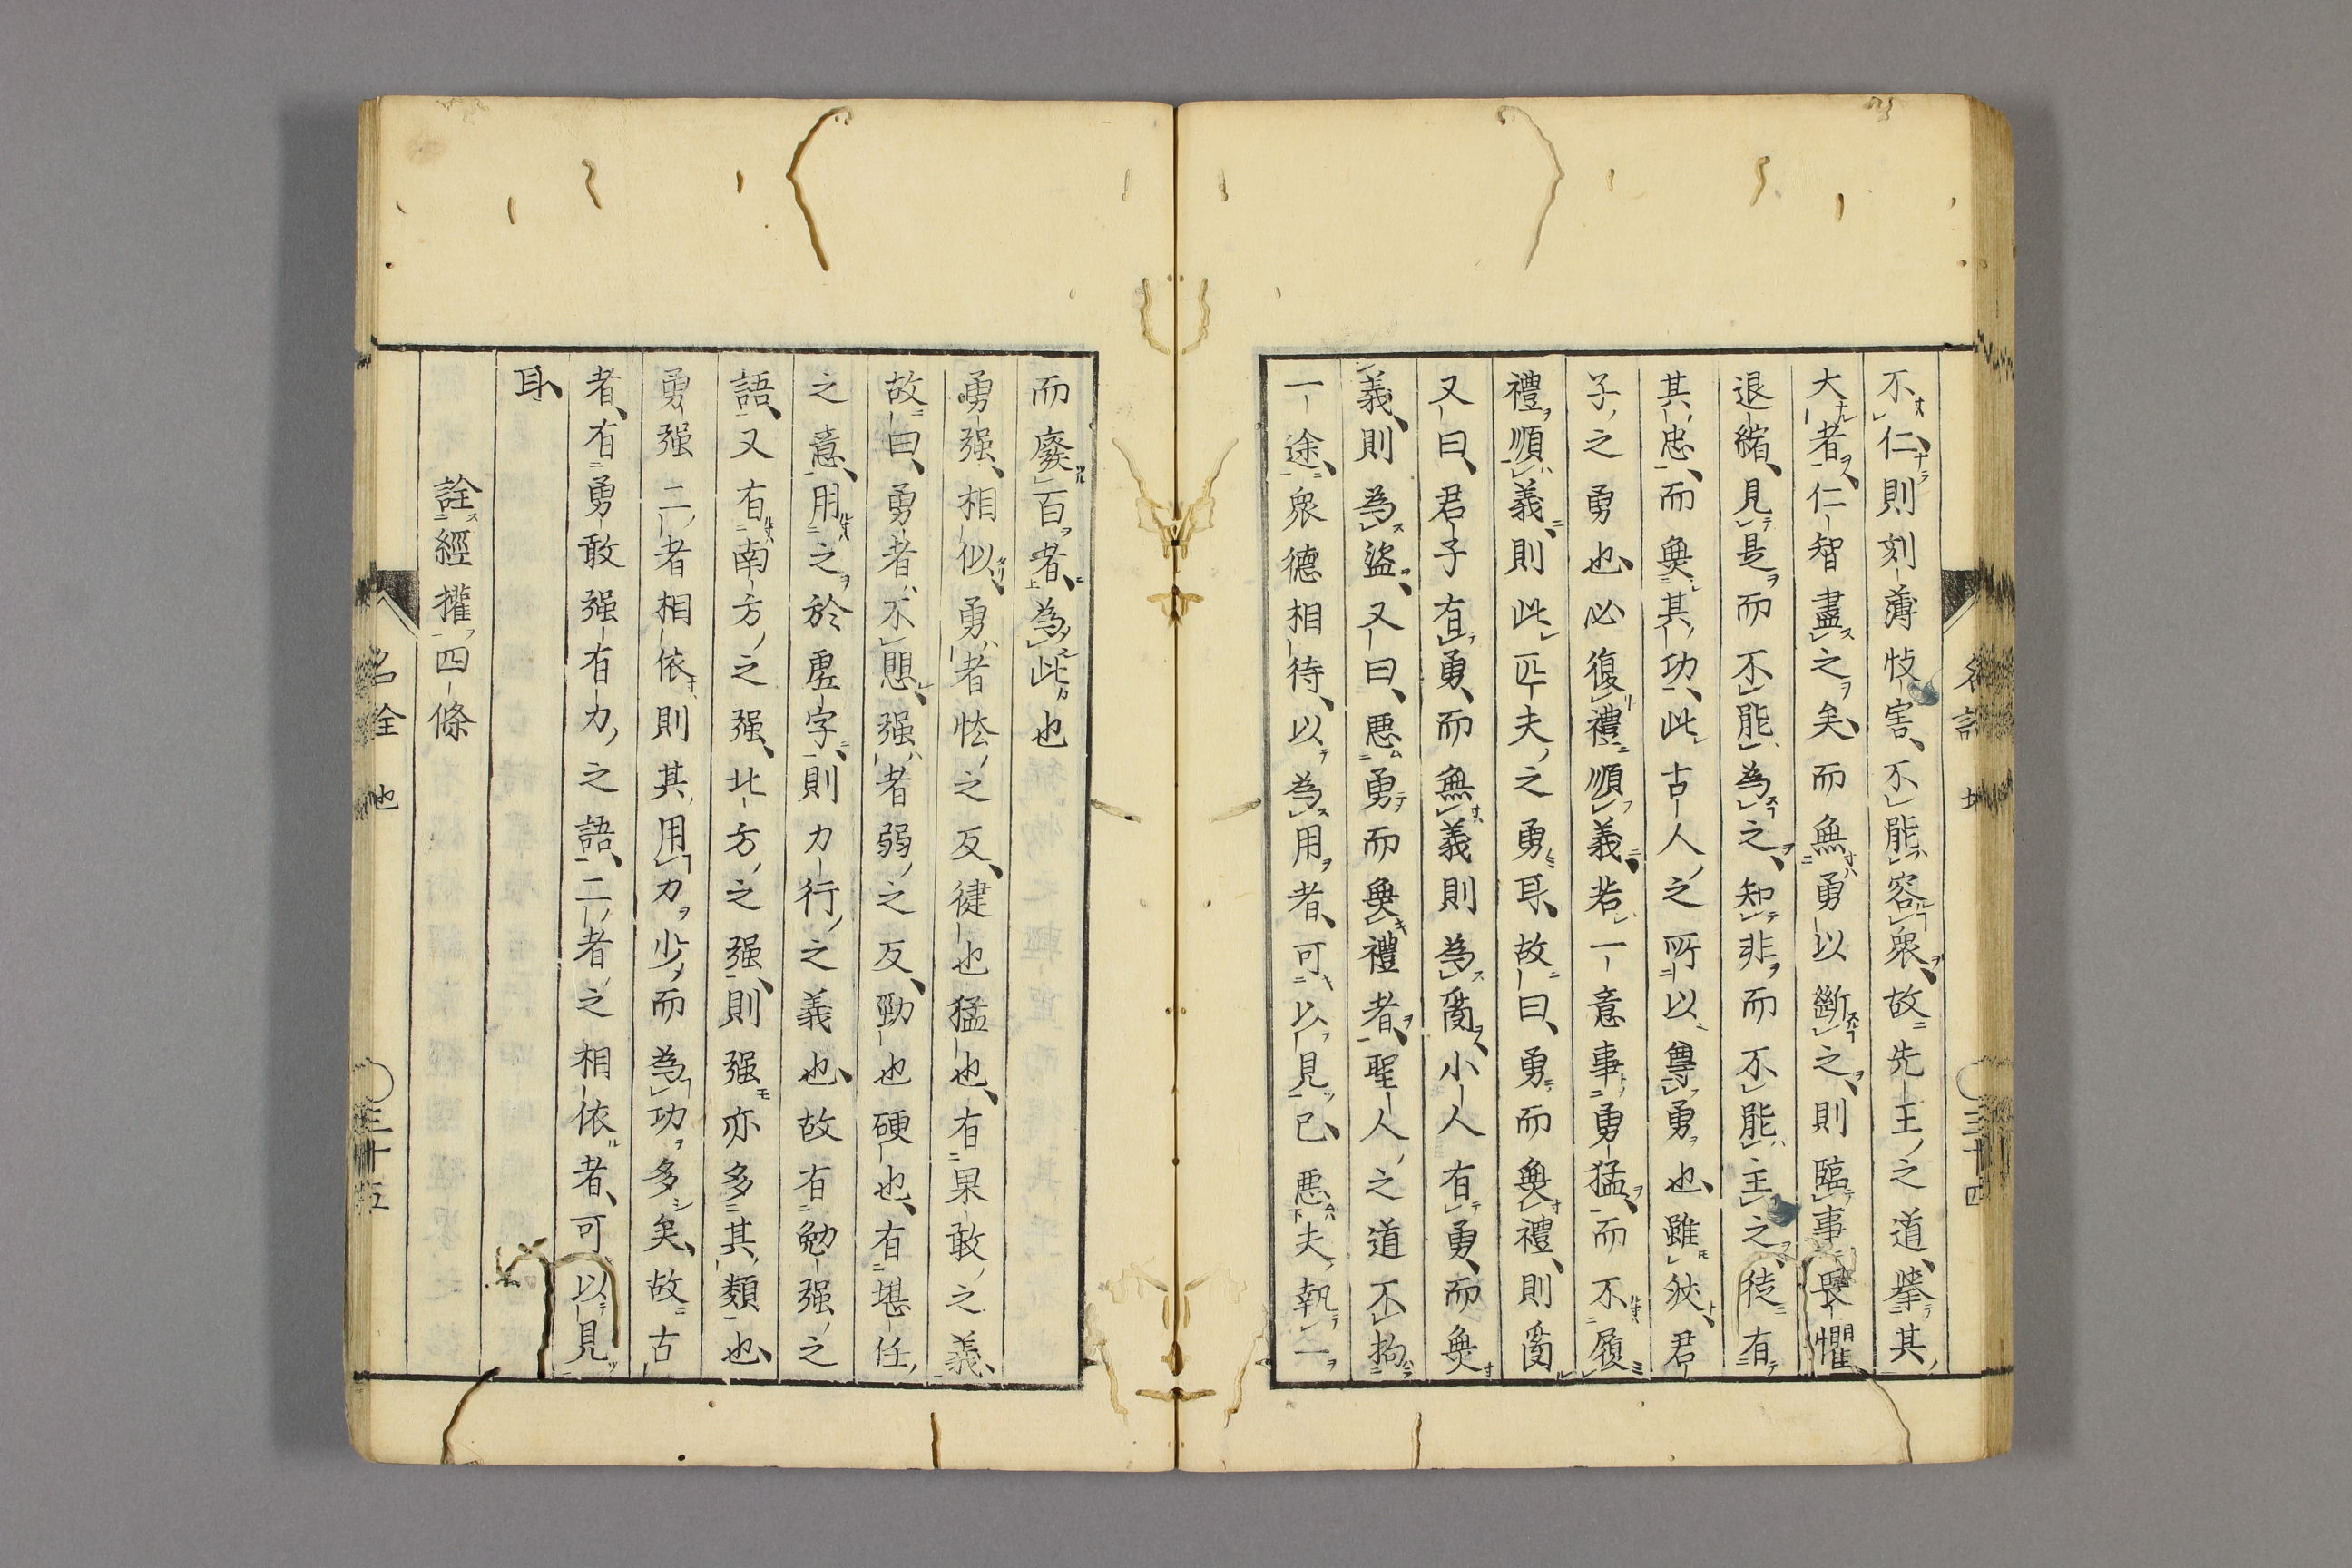 不仁則刻薄忮害不能容衆故先王之道擧其
大者仁智盡之矣而無勇以斷之則臨事畏懼
退縮見是而不能為之知非而不能主之徒有
其忠而無其功此古人之所以尊勇也雖然君
子之勇也必復禮順義若一意事勇猛而不履
禮順義則此匹夫之勇耳故曰勇而無禮則亂
又曰君子有勇而無義則為亂小人有勇而無
義則為盜又曰惡勇而無禮者聖人之道不拘
一途衆德相待以為用者可以見已惡夫執一
而廢百者為此也
勇强相似勇者怯之反健也猛也有果敢之義
故曰勇者不思强者弱之反勁也硬也有堪任
之意用之於虛字則力行之義也故有勉强之
語又有南方之强北方之强則强亦多其類也
勇强二者相依則其用力少而為功多矣故古
者有勇敢强有力之語二者之相依者可以見
耳
詮經權四條
名詮 地
三十五
三十四